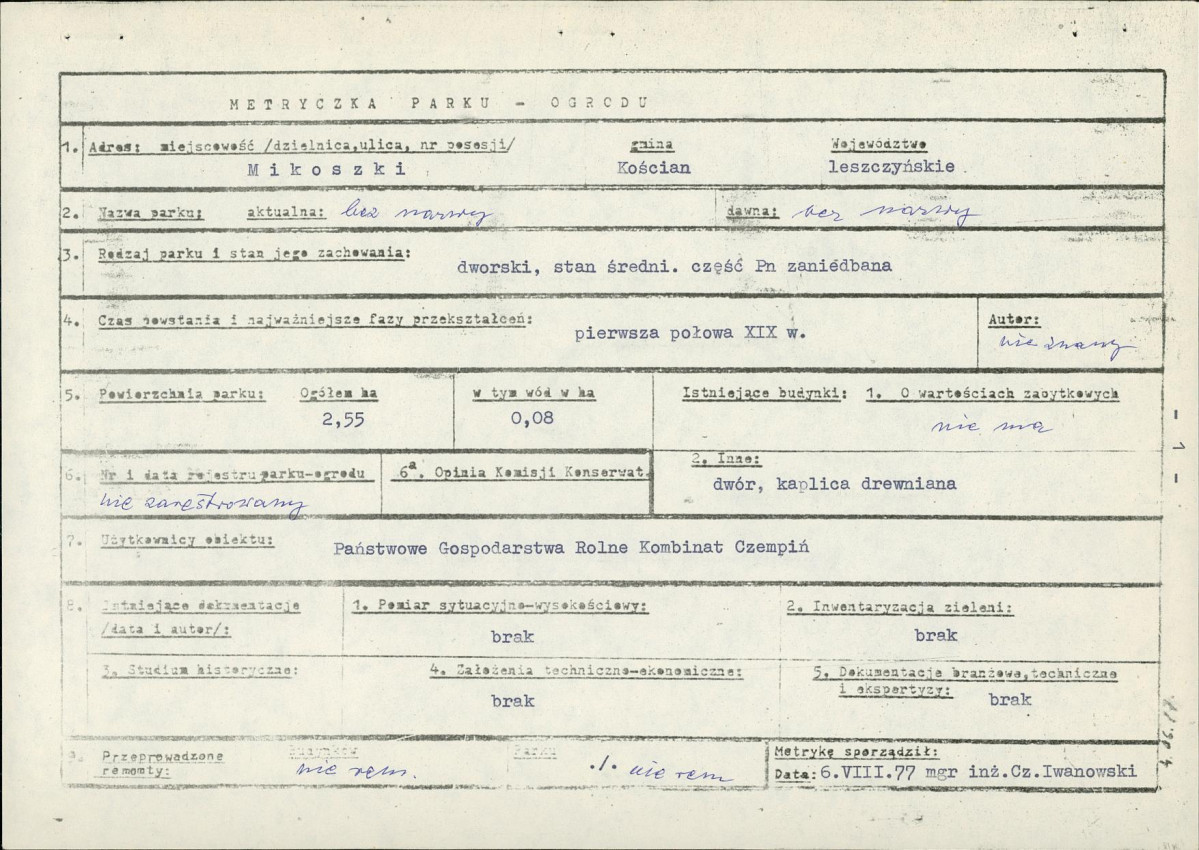 METRYCZKA PARKU - OGRODU
1. Adres: miejscowość /dzielnica,ulica, nr posesji/ gmina Województwo
Mikoszki Kościan leszczyńskie
2. Nazwa parku: aktualna: bez nazwy dawna: bez nazwy
3. Rodzaj parku i stan jego zachowania:
dworski, stan średni. część Pn zaniedbana
4. Czas powstania i najważniejsze fazy przekształceń: Autor:
pierwsza połowa XIX w. nie znany
5. Powierzchnia parku: Ogółem ha w tym wód w ha Istniejące budynki: 1. O wartościach zabytkowych
2,55 0,08 nie ma
6. Nr i data rejestru parku-ogrodu 6a. Opinia Komisji Konserwat. 2. Inne:
nie zarestrowany dwór, kaplica drewniana
7. Użytkownicy obiektu: Państwowe Gospodarstwa Rolne Kombinat Czempiń
8. Istniejące dokumentacje 1. Pomiar sytuacyjno-wysokościowy: 2. Inwentaryzacja zieleni:
/data i autor/: brak brak
3. Studium historyczne: 4. Założenia techniczno-ekonomiczne: 5. Dokumentacje branżowe,techniczne
i ekspertyzy: brak
brak
9. Przeprowadzone remonty: Budynków Parku
nie rem. ./. nie rem
Metrykę sporządził:
Data: 6.VIII.77 mgr inż.Cz.Iwanowski
- 1 -